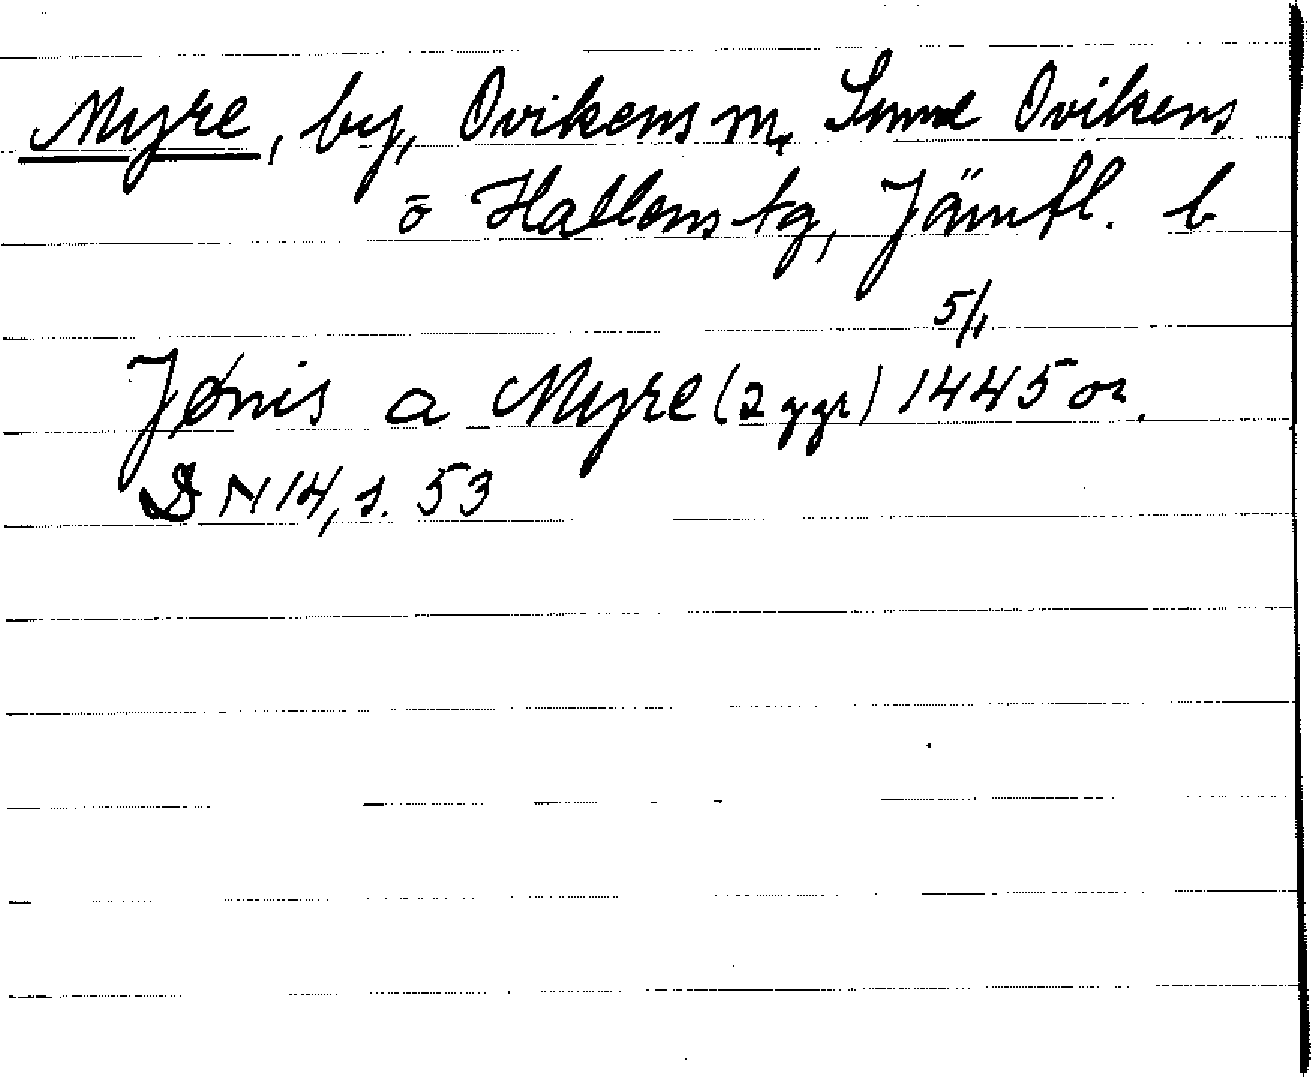 Myre, by, Ovikens sn, Sunne Ovikens
o Hallens tg, Jämtl. b
5/1
Jønis a Myre (2 ggr) 1445 or.
DN 14, s. 53